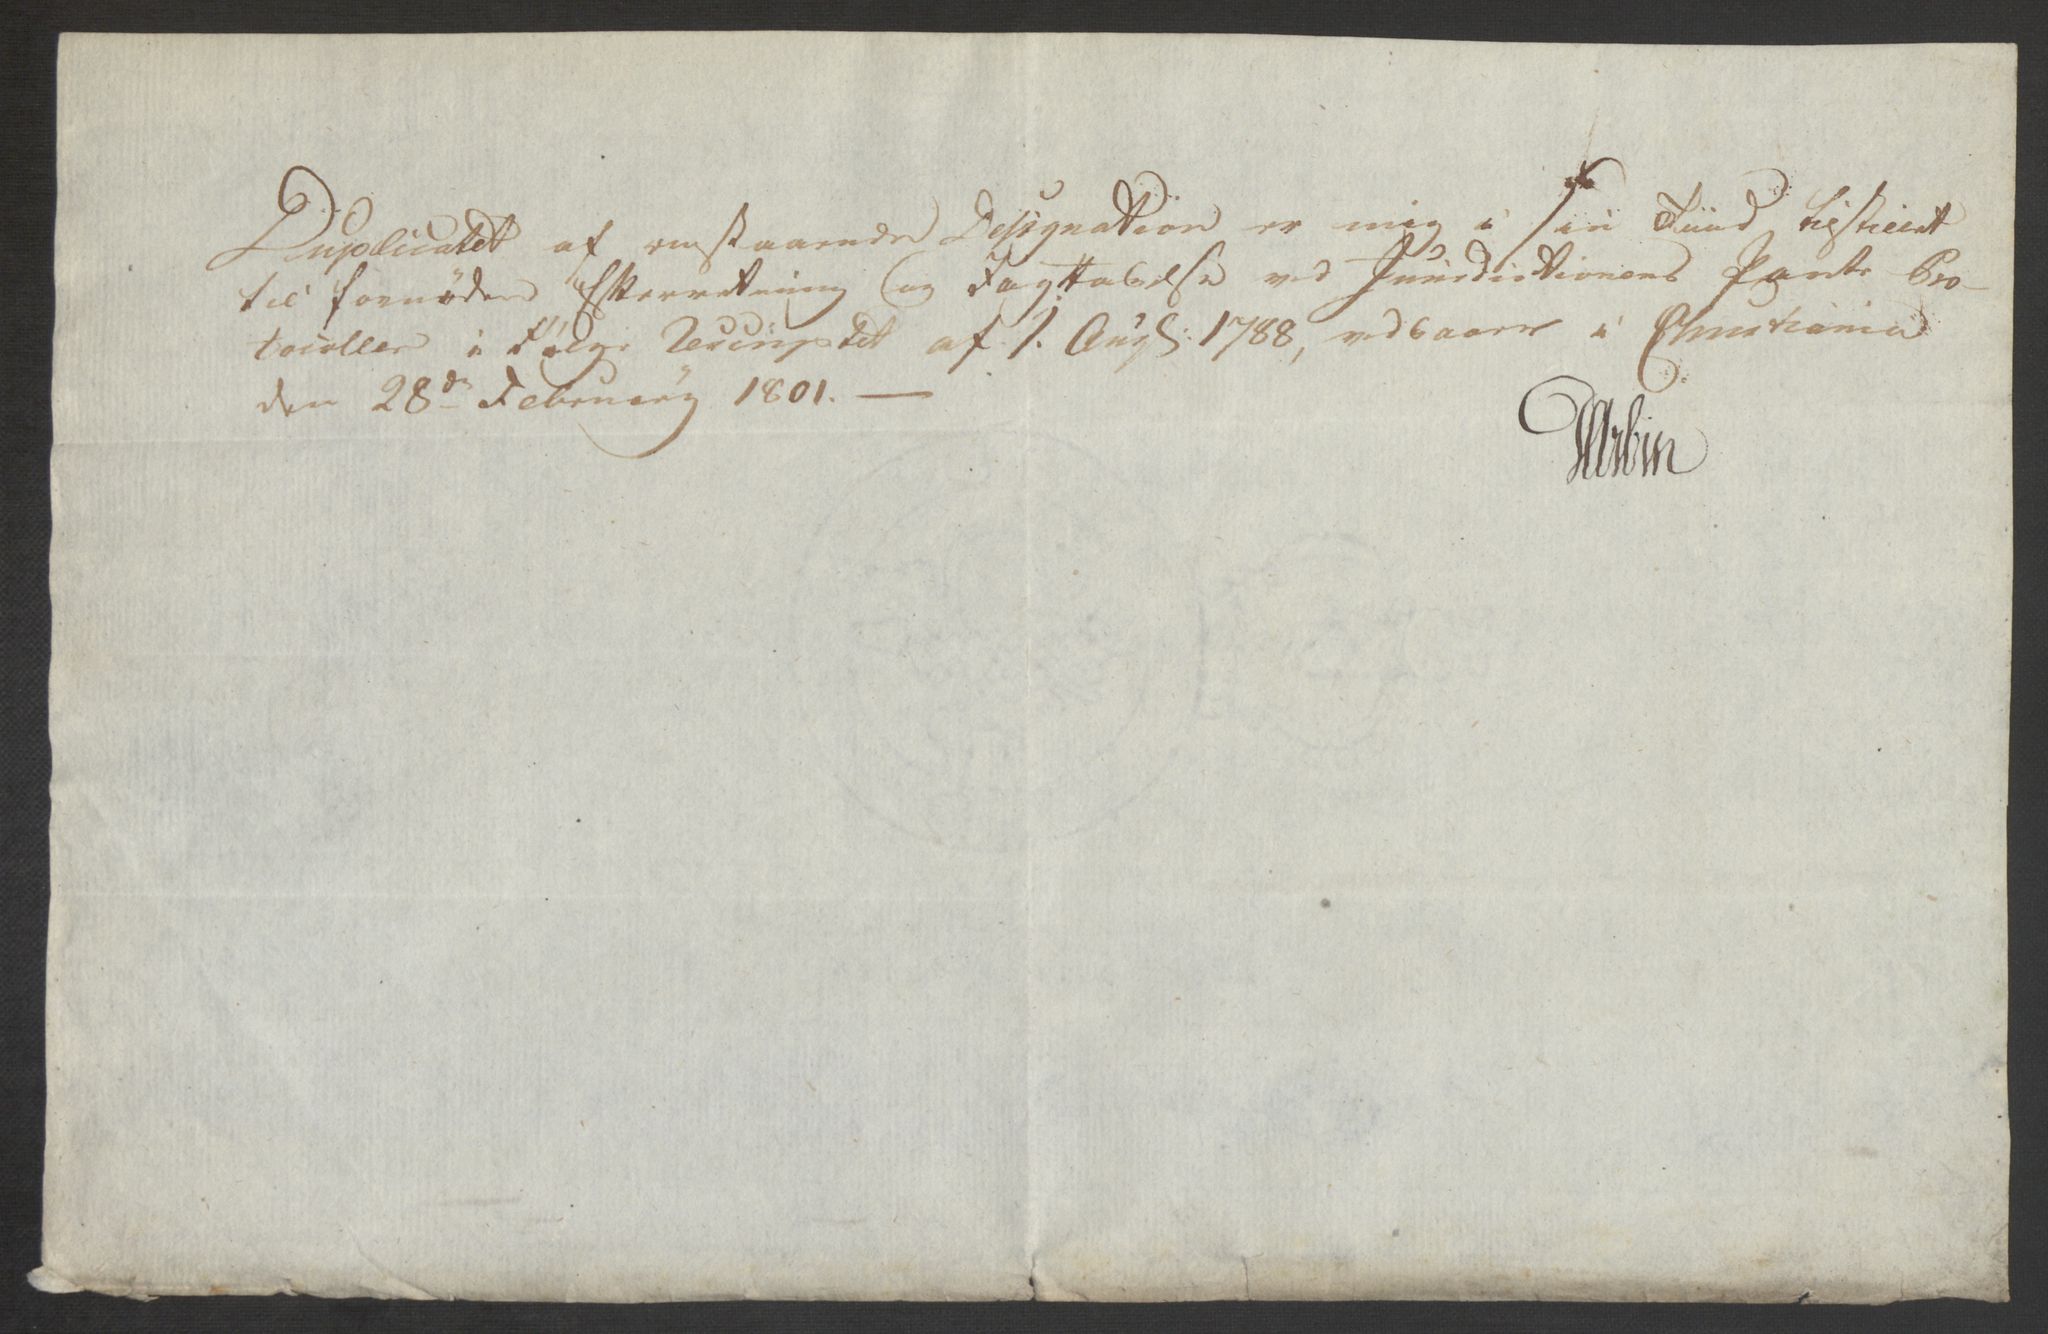 Duplicatet af omstaaende Designation er mig i sin Tiid tilstillet
til fornøden Efterretning og Iagttagelse ved Juurisdictionens Pante Pro-
tocoller i Følge Rescriptet af 1. Aug: 1788, vedbaarer i Christiania
den 28de Februarÿ 1801. —
Arbin